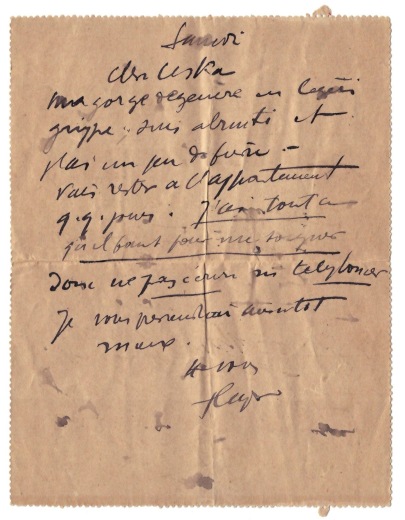 Samedi
Cher Ceska
ma gorge dégénère en légère
grippe. suis abruti et
j'ai un peu de fièvre -
vais rester à l'appartement
q.q. jours. J'ai tout ce
qu'il faut pour me soigner
donc ne pas courir ni telephoner
Je vous préviendrai aussitôt
mieux.